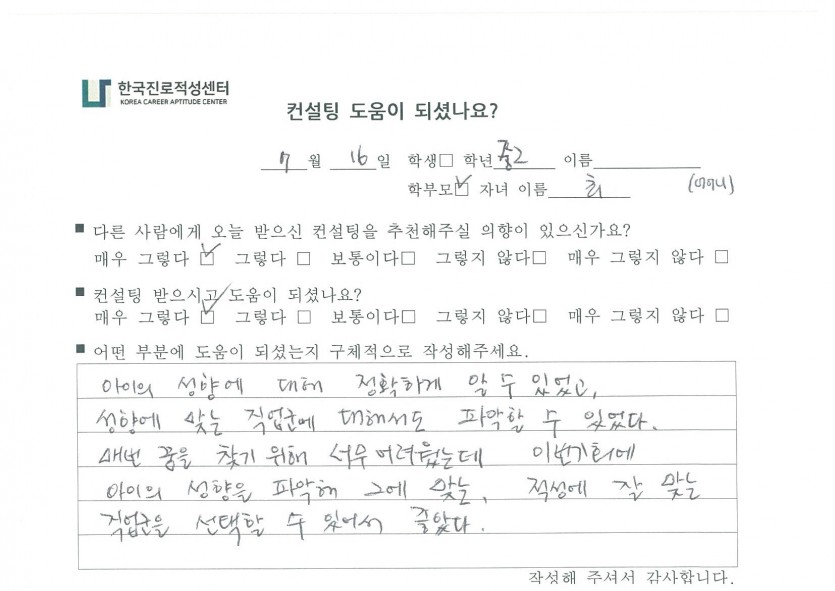 한국진로적성센터
KOREA CAREER APTITUDE CENTER
컨설팅 도움이 되셨나요?
7월 16일 학생□ 학년 중2 이름
학부모☑ 자녀 이름 최 (어머니)
■ 다른 사람에게 오늘 받으신 컨설팅을 추천해주실 의향이 있으신가요?
매우 그렇다 ☑ 그렇다 □ 보통이다□ 그렇지 않다□ 매우 그렇지 않다 □
■ 컨설팅 받으시고 도움이 되셨나요?
매우 그렇다 ☑ 그렇다 □ 보통이다□ 그렇지 않다□ 매우 그렇지 않다 □
■ 어떤 부분에 도움이 되셨는지 구체적으로 작성해주세요.
아이의 성향에 대해 정확하게 알 수 있었고,
성향에 맞는 직업군에 대해서도 파악할 수 있었다.
매번 꿈을 찾기 위해 너무 어려웠는데 이번기회에
아이의 성향을 파악해 그에 맞는, 적성에 잘 맞는
직업군을 선택할 수 있어서 좋았다.
작성해 주셔서 감사합니다.